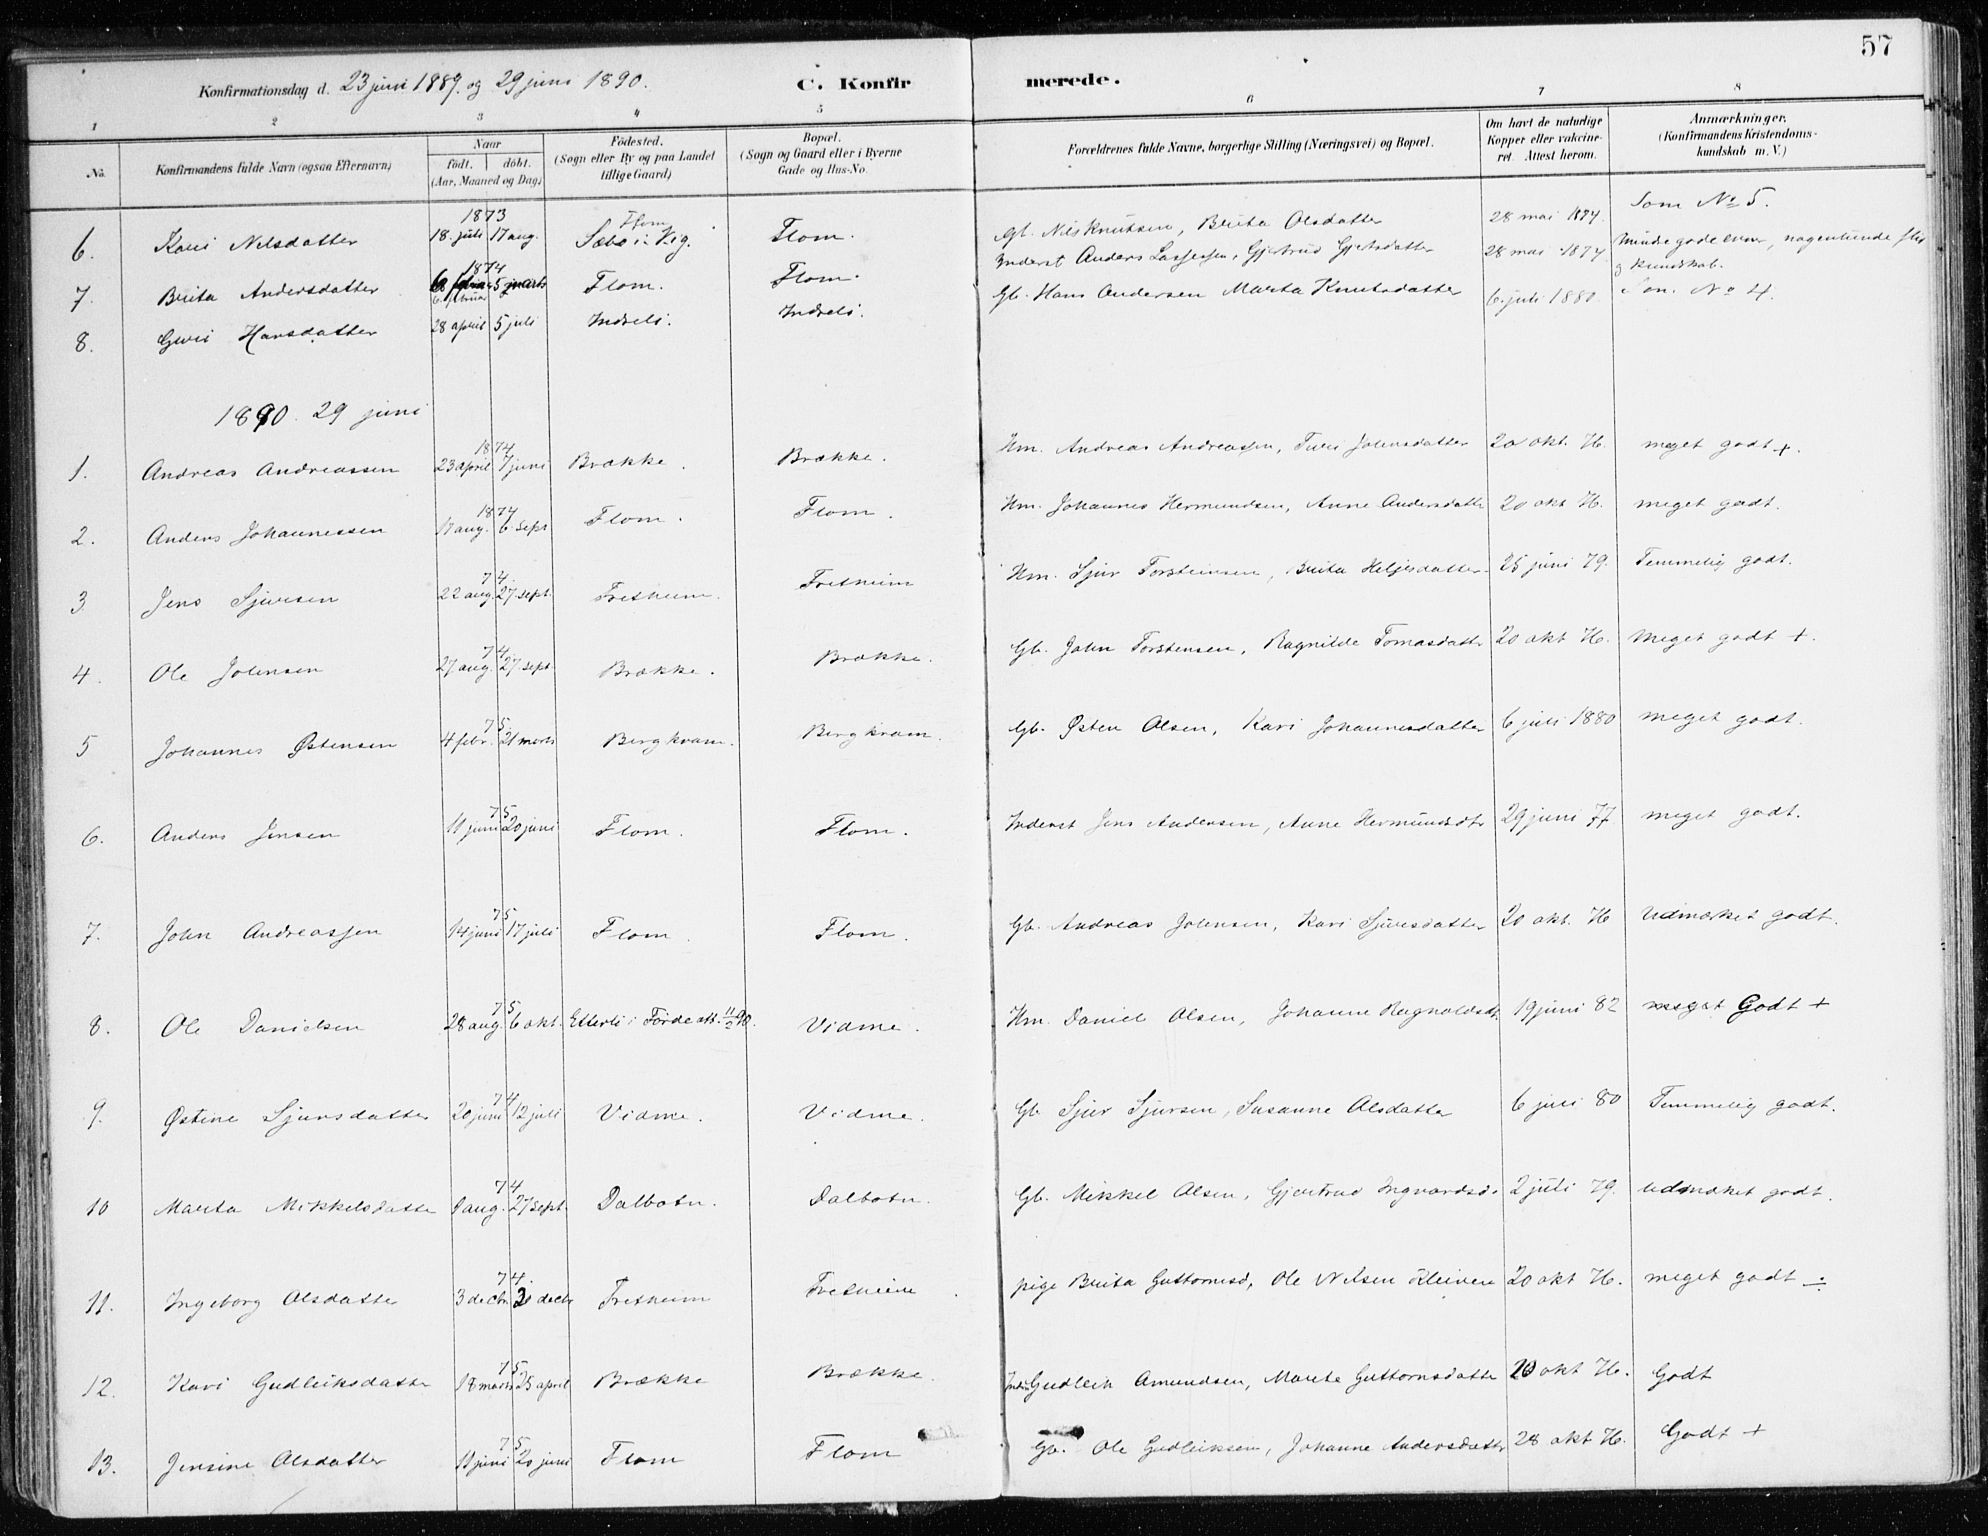 57
Konfirmationsdag d. 23 juni 1889. og 29 juni 1890. C. Konfirmerede.
1 2 3 4 5 6 7 8
No. Konfirmandens fulde Navn (ogsaa Efternavn) Naar født. døbt. (Aar, Maaned og Dag) Fødested. (Sogn eller By og paa Landet tillige Gaard) Bopæl. (Sogn og Gaard eller i Byerne Gade og Hus-No. Forældrenes fulde Navne, borgerlige Stilling (Næringsvei) og Bopæl. Om havt de naturlige Kopper eller vakcineret. Attest herom. Anmærkninger. (Konfirmandens Kristendomskundskab m. V.)
6. Kari Nilsdatter 1873 18. juli 17 aug. Sæbø i Vig. Flom. Gb. Nils Knutsen, Brita Olsdatter 28 mai 1874. Som No 5.
7. Brita Andersdatter 1874 6 februar 5 marts Flom. Flom. Inderst Anders Lassesen, Gjertrud Gjertsdatter 28 mai 1874 Mindre gode evner, nogenlunde flid og kundskab.
8. Guri Hansdatter 28 april 5 juli Indreli. Indreli. Gb. Hans Andersen Marta Knutsdatter 6. juli 1880. Som No 4.
1890. 29 juni
1. Andreas Andreassen 1874 23 april 7 juni Brække. Brække. Hm. Andreas Andreassen, Turi Johnsdatter 20 okt. 76. meget godt +.
2. Anders Johannessen 1874 18 aug. 6 sept Flom. Flom. Hm. Johannes Hermundsen, Anne Andersdatter 20 okt 76. meget godt.
3 Jens Sjursen 74. 22 aug. 27. sept. Fretheim. Fretheim Hm. Sjur Torsteinsen, Brita Heljesdatter 25 juni 79. Temmelig godt.
4. Ole Johnsen 74. 27 aug. 27. sept. Brække. Brække. Gb. John Torstensen, Ragnilde Tomasdatter 20 okt 76. Meget godt +.
5 Johannes Østensen 75 4 febr. 21 marts Bergkvam. Bergkvam. Gb. Østen Olsen, Kari Johannesdatter 6 juli 1880 meget godt.
6. Anders Jensen 75 11 juni 20 juni Flom. Flom. Inderst Jens Andersen, Anne Hermundsdtr 29 juni 77. meget godt.
7. John Andreassen 75 14 juni 17 juli Flom. Flom. Gb. Andreas Johnsen, Kari Sjursdatter 20 okt. 76 Udmærket godt.
8. Ole Danielsen 75 28 aug. 6 okt. Etterli i Førde att. 11/2 90. Vidme. Hm. Daniel Olsen, Johanne Ragnaldsdt. 19 juni 82 meget Godt +
9. Østine Sjursdatter 74 20 juni 12 juli Vidme. Vidme. Gb. Sjur Sjursen, Susanne Olsdatter 6 juli 80 Temmelig godt.
10 Marta Mikkelsdatter 74 9 aug. 27 sept. Dalbotn. Dalbotn. Gb. Mikkel Olsen, Gjertrud Ingvardsd. 2 juli 79. udmæket godt.
11. Ingeborg Olsdatter 74. 3 decbr 30 decbr Fretheim Fretheim. pige Brita Guttormsd, Ole Nilsen Kleivene 20 okt 76. meget godt ÷
12. Kari Gudleiksdatter 75 18 marts 25 april Brække Brække. Ind. Gudleik Amundsen, Marta Guttormsdatter 20 okt 76. Godt
13. Jensine Olsdatter 75 11 juni 20 juni Flom Flom Gb. Ole Gudleiksen, Johanne Andersdatter 28 okt 76. Godt +